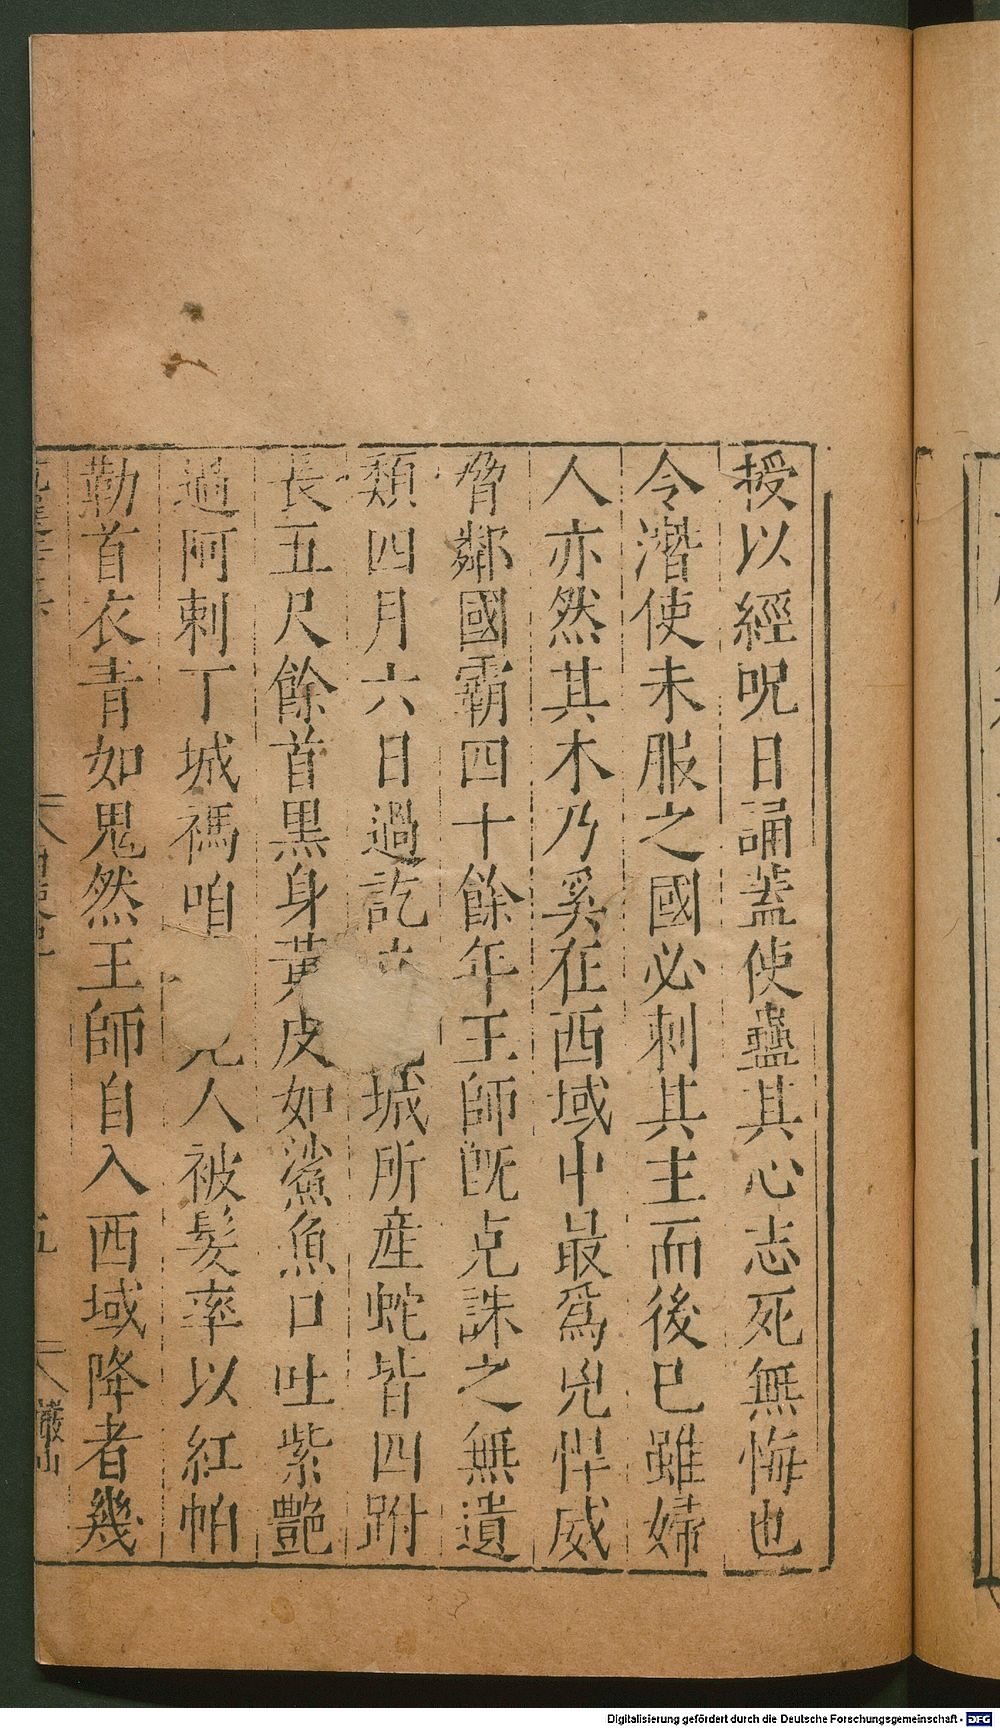 授以經呪日誦葢使蠱其心志死無悔也
令潛使未服之國必刺其主而後已雖婦
人亦然其木乃奚在西域中最爲兇悍威
脅鄰國霸四十餘年王師旣克誅之無遺
類四月六日過訖城所産蛇皆四跗
長五尺餘首黒身黄皮如鯊魚口吐紫艶
過阿剌丁城禡咱人被髮率以紅帕
勒首衣青如鬼然王師自入西域降者幾
五
Digitalisierung gefördert durch die Deutsche Forschungsgemeinschaft - DFG